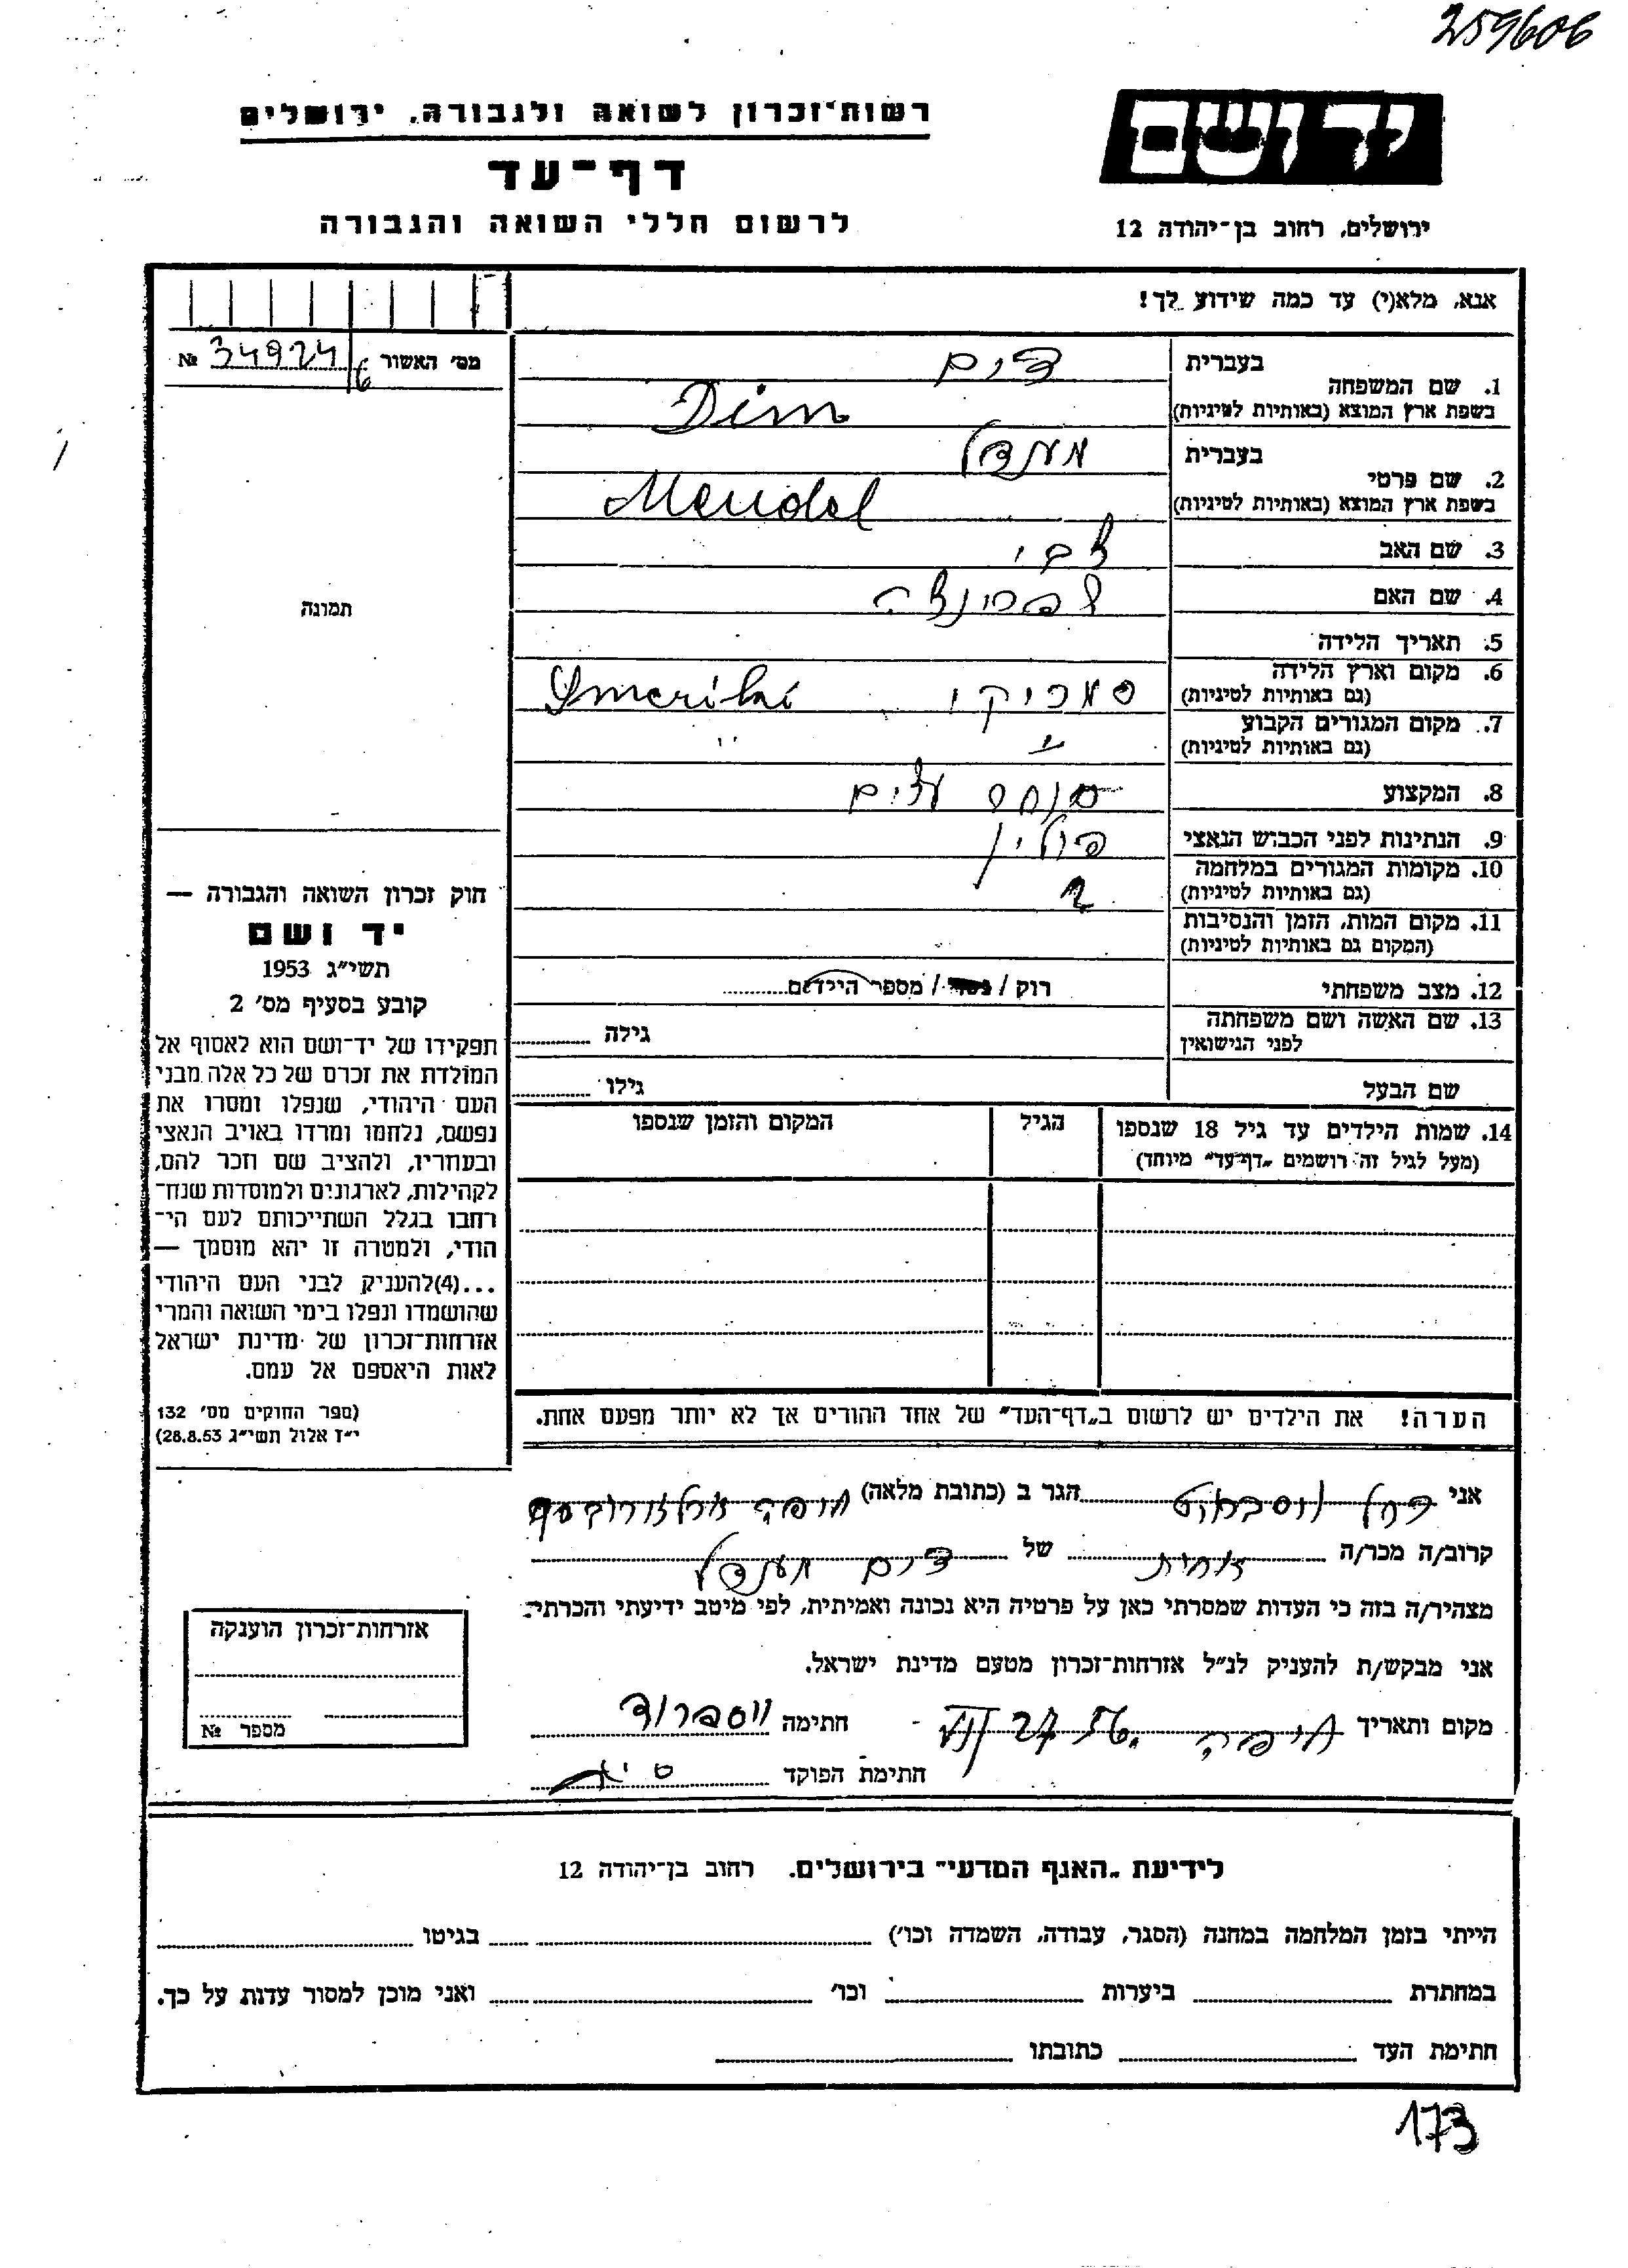 259606
יד ושם
רשות־זכרון לשואה ולגבורה, ירושלים
דף־עד
ירושלים, רחוב בן־יהודה 12
לרשום חללי השואה והגבורה
אנא, מלא(י) עד כמה שידוע לך!
מס׳ האשור 34924/6 №
1. שם המשפחה
בעברית דים
בשפת ארץ המוצא (באותיות לטיניות) Dim
2. שם פרטי
בעברית מענדל
בשפת ארץ המוצא (באותיות לטיניות) Mendel
3. שם האב צבי
4. שם האם
תמונה
5. תאריך הלידה
6. מקום וארץ הלידה
(גם באותיות לטיניות) סמריקי Smeriki
7. מקום המגורים הקבוע
(גם באותיות לטיניות) " "
8. המקצוע סוחר עצים
9. הנתינות לפני הכבוש הנאצי פולין
10. מקומות המגורים במלחמה
(גם באותיות לטיניות) ?
11. מקום המות, הזמן והנסיבות
(המקום גם באותיות לטיניות)
12. מצב משפחתי רוק / נשוי / מספר הילדים
13. שם האשה ושם משפחתה
לפני הנישואין
גילה
שם הבעל גילו
14. שמות הילדים עד גיל 18 שנספו
(מעל לגיל זה רושמים „דף־עד" מיוחד)
הגיל
המקום והזמן שנספו
חוק זכרון השואה והגבורה —
יד ושם
תשי״ג 1953
קובע בסעיף מס׳ 2
תפקידו של יד־ושם הוא לאסוף אל
המולדת את זכרם של כל אלה מבני
העם היהודי, שנפלו ומסרו את
נפשם, נלחמו ומרדו באויב הנאצי
ובעוזריו, ולהציב שם וזכר להם,
לקהילות, לארגונים ולמוסדות שנח־
רבו בגלל השתייכותם לעם הי־
הודי, ולמטרה זו יהא מוסמך —
...(4) להעניק לבני העם היהודי
שהושמדו ונפלו בימי השואה והמרי
אזרחות־זכרון של מדינת ישראל
לאות היאספם אל עמם.
(ספר החוקים מס׳ 132
י״ז אלול תשי״ג 28.8.53)
הערה! את הילדים יש לרשום ב„דף־העד" של אחד ההורים אך לא יותר מפעם אחת.
אני רחל הגר ב (כתובת מלאה) חיפה
קרוב/ה מכר/ה אחות של דים מענדל
מצהיר/ה בזה כי העדות שמסרתי כאן על פרטיה היא נכונה ואמיתית, לפי מיטב ידיעתי והכרתי.
אני מבקש/ת להעניק לנ״ל אזרחות־זכרון מטעם מדינת ישראל.
מקום ותאריך חיפה חתימה
חתימת הפוקד
אזרחות־זכרון הוענקה
מספר №
לידיעת „האגף המדעי" בירושלים. רחוב בן־יהודה 12
הייתי בזמן המלחמה במחנה (הסגר, עבודה, השמדה וכו׳) בגיטו
במחתרת ביערות וכו׳ ואני מוכן למסור עדות על כך.
חתימת העד כתובתו
173